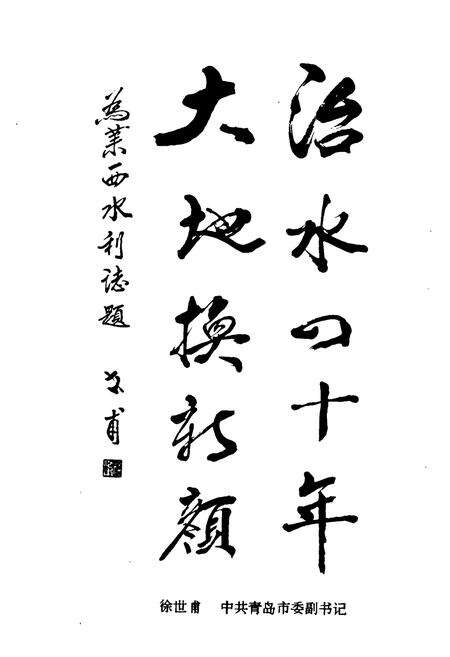 治水四十年
大地换新颜
为莱西水利志题
世甫
徐世甫 中共青岛市委副书记